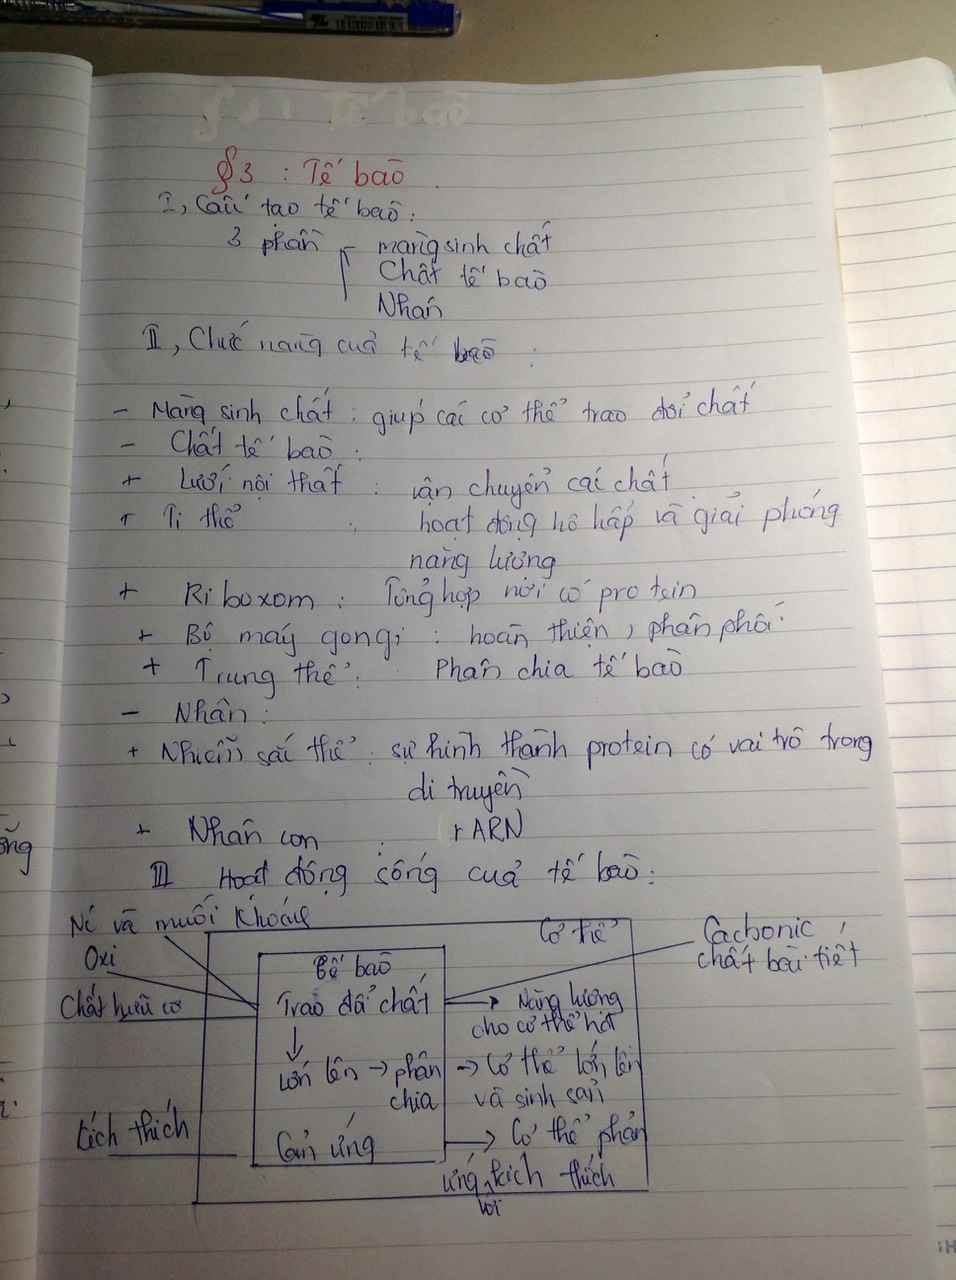 §3 : Tế bào
I, Cấu tạo tế bào:
3 phần - màng sinh chất
Chất tế bào
Nhân
II, Chức năng của tế bào :
- Màng sinh chất : giúp các cơ thể trao đổi chất
- Chất tế bào :
+ Lưới nội thất : vận chuyển các chất
+ Ti thể : hoạt động hô hấp và giải phóng
năng lượng
+ Ri boxom : Tổng hợp nơi có protein
+ Bộ máy gongi : hoàn thiện, phân phối
+ Trung thể : Phân chia tế bào
- Nhân :
+ Nhiễm sắc thể : sự hình thành protein có vai trò trong
di truyền
+ Nhân con : rARN
III Hoạt động sống của tế bào :
Nc và muối khoáng
Cơ thể
Cacbonic,
Oxi
Tế bào
chất bài tiết
Chất hữu cơ
Trao đổi chất
Năng lượng
cho cơ thể hđ
Lớn lên → phân → Cơ thể lớn lên
chia
và sinh sản
kích thích
Cảm ứng
Cơ thể phản
ứng kích thích
với